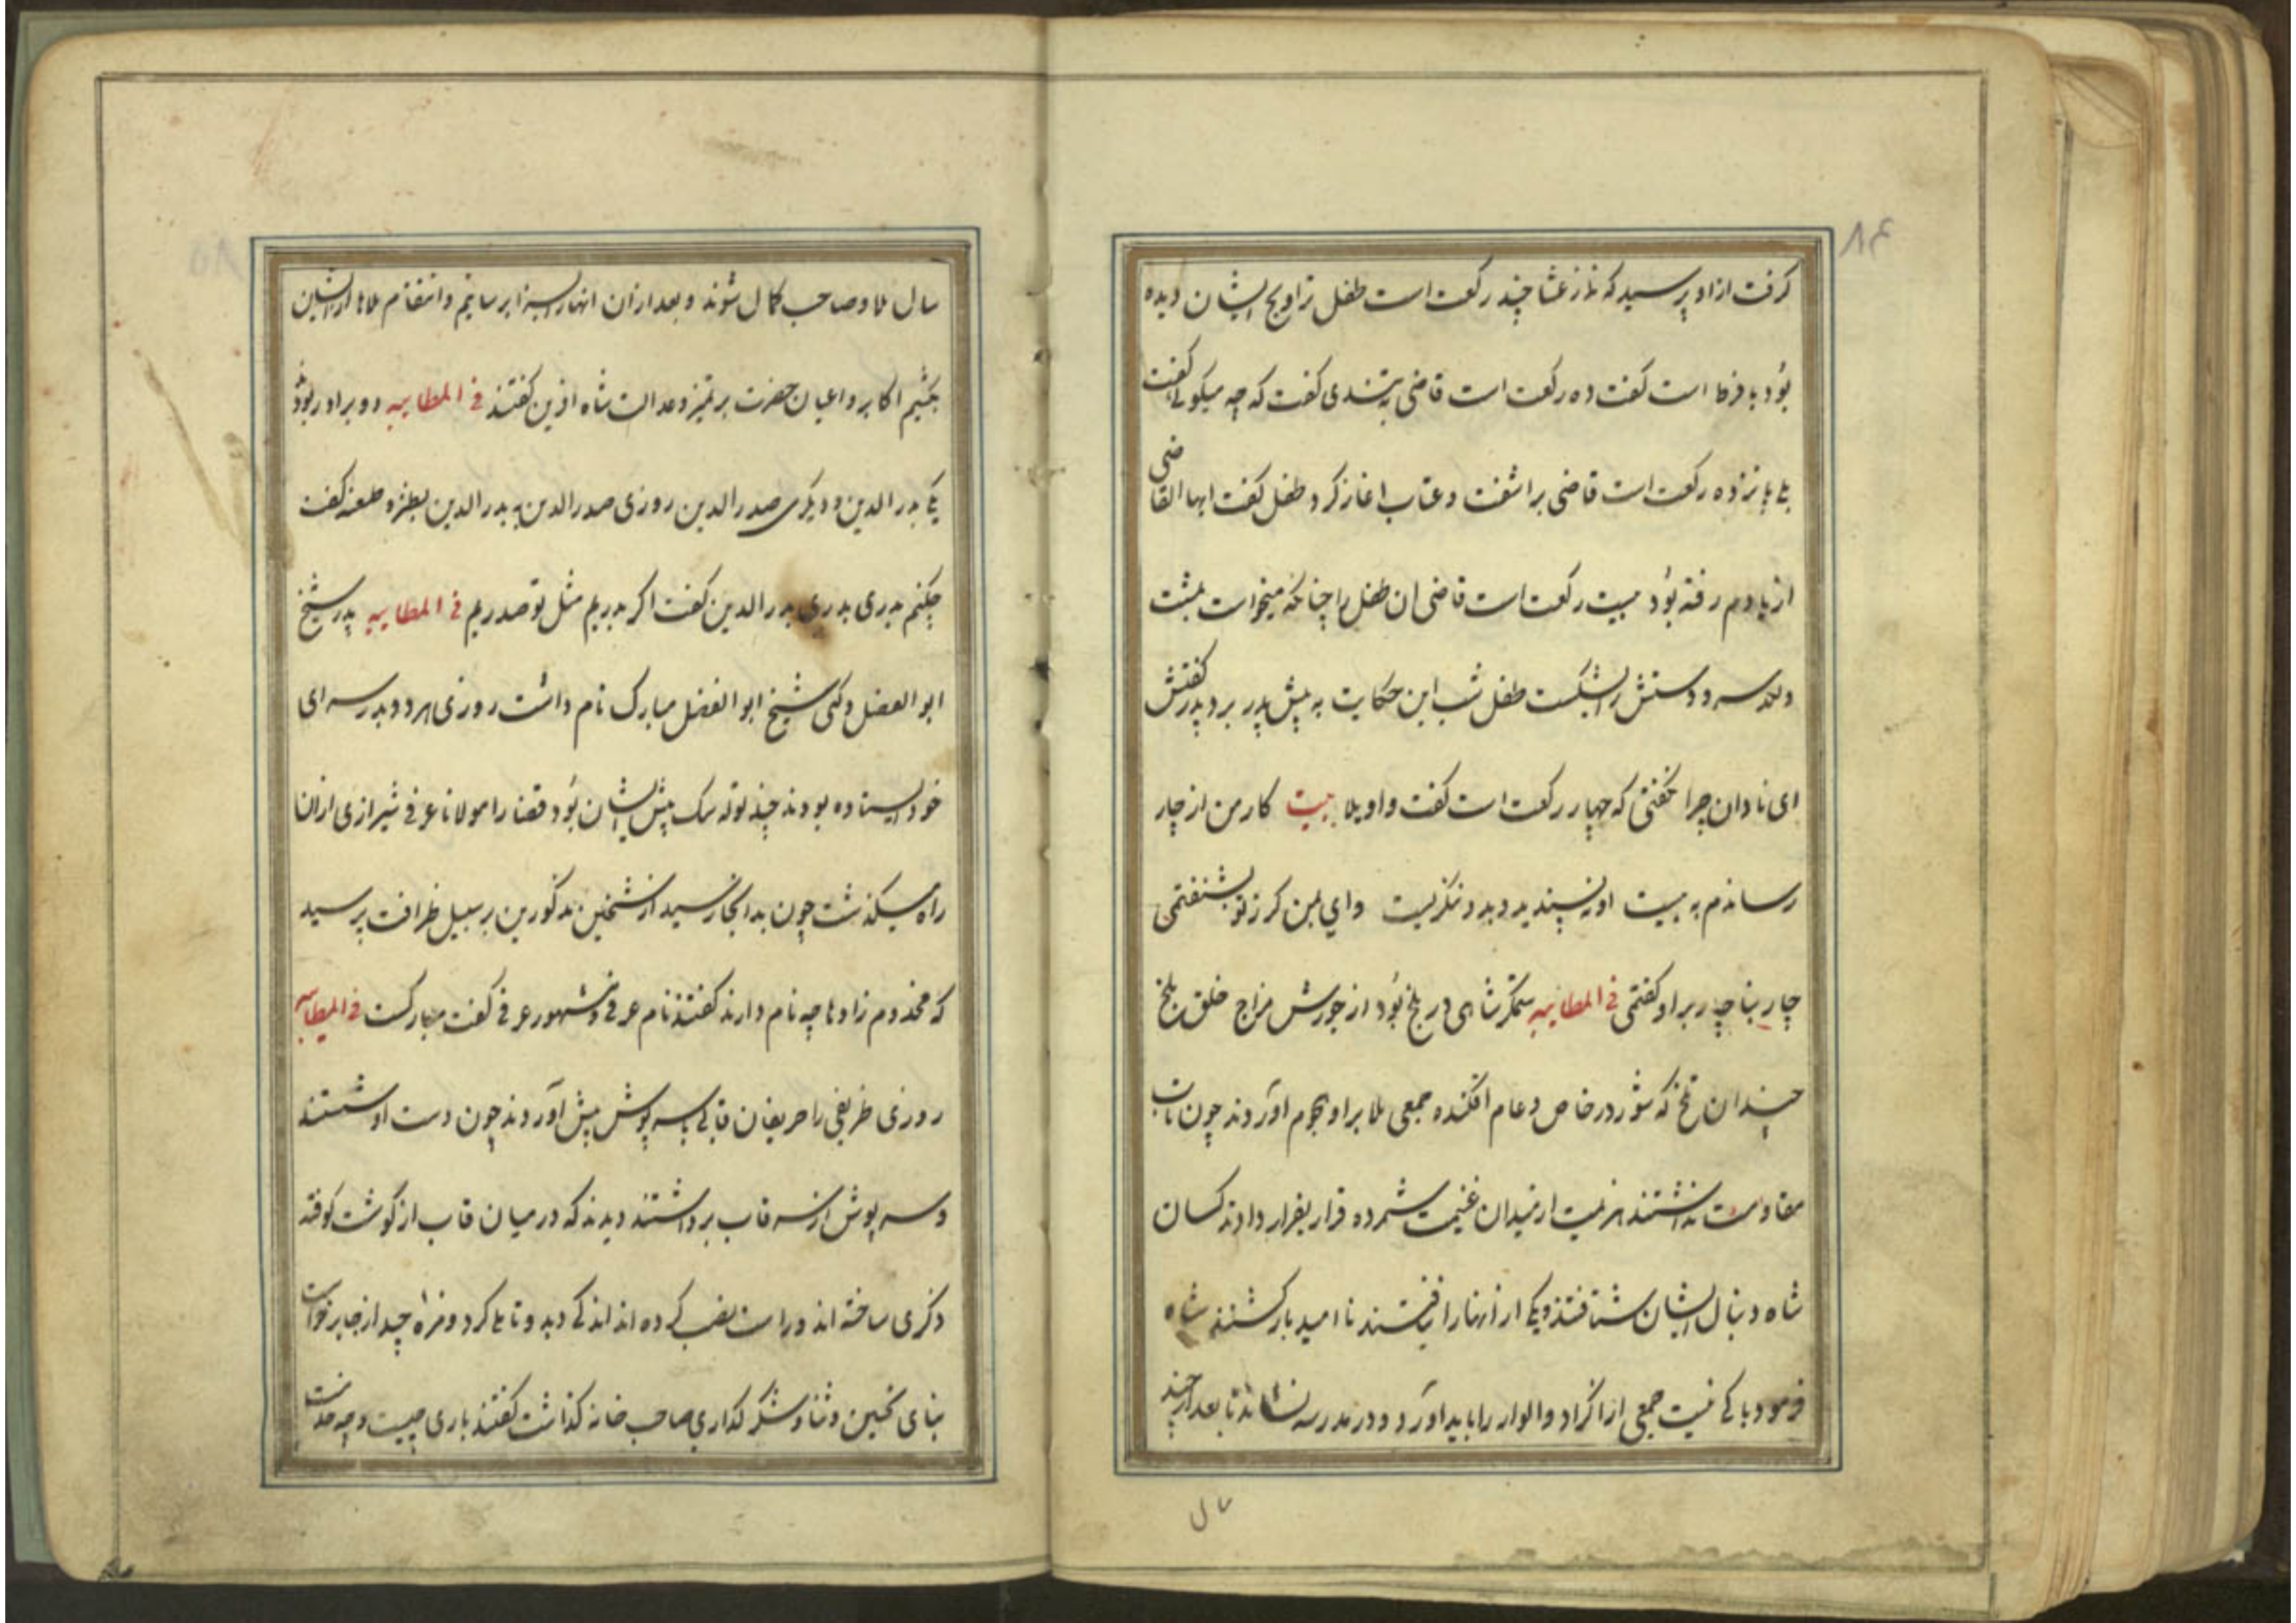 ۸۴
کرفت ازاو پرسید که نماز عشا چند رکعت است طفل تراویح ایشان دیده
بود با فرضها است کفت ده رکعت است قاضی به تندی کفت که چه میکوئی کفت
بلی پانزده رکعت است قاضی براشفت و عتاب اغاز کرد طفل کفت ایها القاضی
از یادم رفته بود بیست رکعت است قاضی ان طفل را چنانکه میخواست بمشت
و لکد سر و دستش را بشکست طفل شب این حکایت به پیش پدر برد پدرش کفتش
ای نادان چرا نکفتی که چهار رکعت است کفت واویلا بیت کار من از چار
رساندم به بیست او نپسندید و بد و نکریست وای بمن کر ز تو بشنفتمی
چار بناچار براو کفتمی فی المطایبه ستمکر شاهی در بلخ بود از جورش مزاج خلق بلخ
چندان تلخ که شور در خاص و عام افکنده جمعی ملا براو هجوم اوردند چون تاب
مقاومت نداشتند هزیمت ازمیدان غنیمت شمرده قرار بفرار دادند کسان
شاه دنبال ایشان شتافتند و یکی از انها را نیافتند نا امید بازکشتند شاه
فرمود باکی نیست جمعی از اکراد و الوار را باید اورد و در مدرسه نشاند تا بعد از چند
سال
۸۵
سال ملا و صاحب کمال شوند و بعد ازان انها را بسزا برسانیم و انتقام ملاها از ایشان
بکشیم اکابر و اعیان حضرت بر تمیز و عدالت شاه افرین کفتند فی المطایبه دو برادر بودند
یکی بدر الدین و دیکری صدر الدین روزی صدر الدین به بدر الدین بطنز و طعنه کفت
چکنم بدری بدری بدر الدین کفت اکر بدریم مثل تو صدریم فی المطایبه پدر شیخ
ابو الفضل و کی شیخ ابو الفضل مبارک نام داشت روزی هر دو بدر سرای
خود ایستاده بودند چند توله سک پیش ایشان بود قضا را مولانا عرفی شیرازی ازان
راه میکذشت چون بدانجا رسید از شیخین مذکورین بر سبیل ظرافت پرسید
که مخدوم زادها چه نام دارند کفتند نام عرفی و مشهور عرفی کفت مبارکست فی المطایبه
روزی ظریفی را حریفان قابی سرپوش پیش اوردند چون دست او شستند
و سرپوش از سر قاب برداشتند دیدند که در میان قاب از کوشت کوفته
ذکری ساخته اند و راست نصب کرده اند اندکی دید و تاملی کرد و مزه چید از جا برخواست
بنای تحسین و ثنا و شکر کذاری صاحب خانه کذاشت کفتند باری چیست و چه حدست